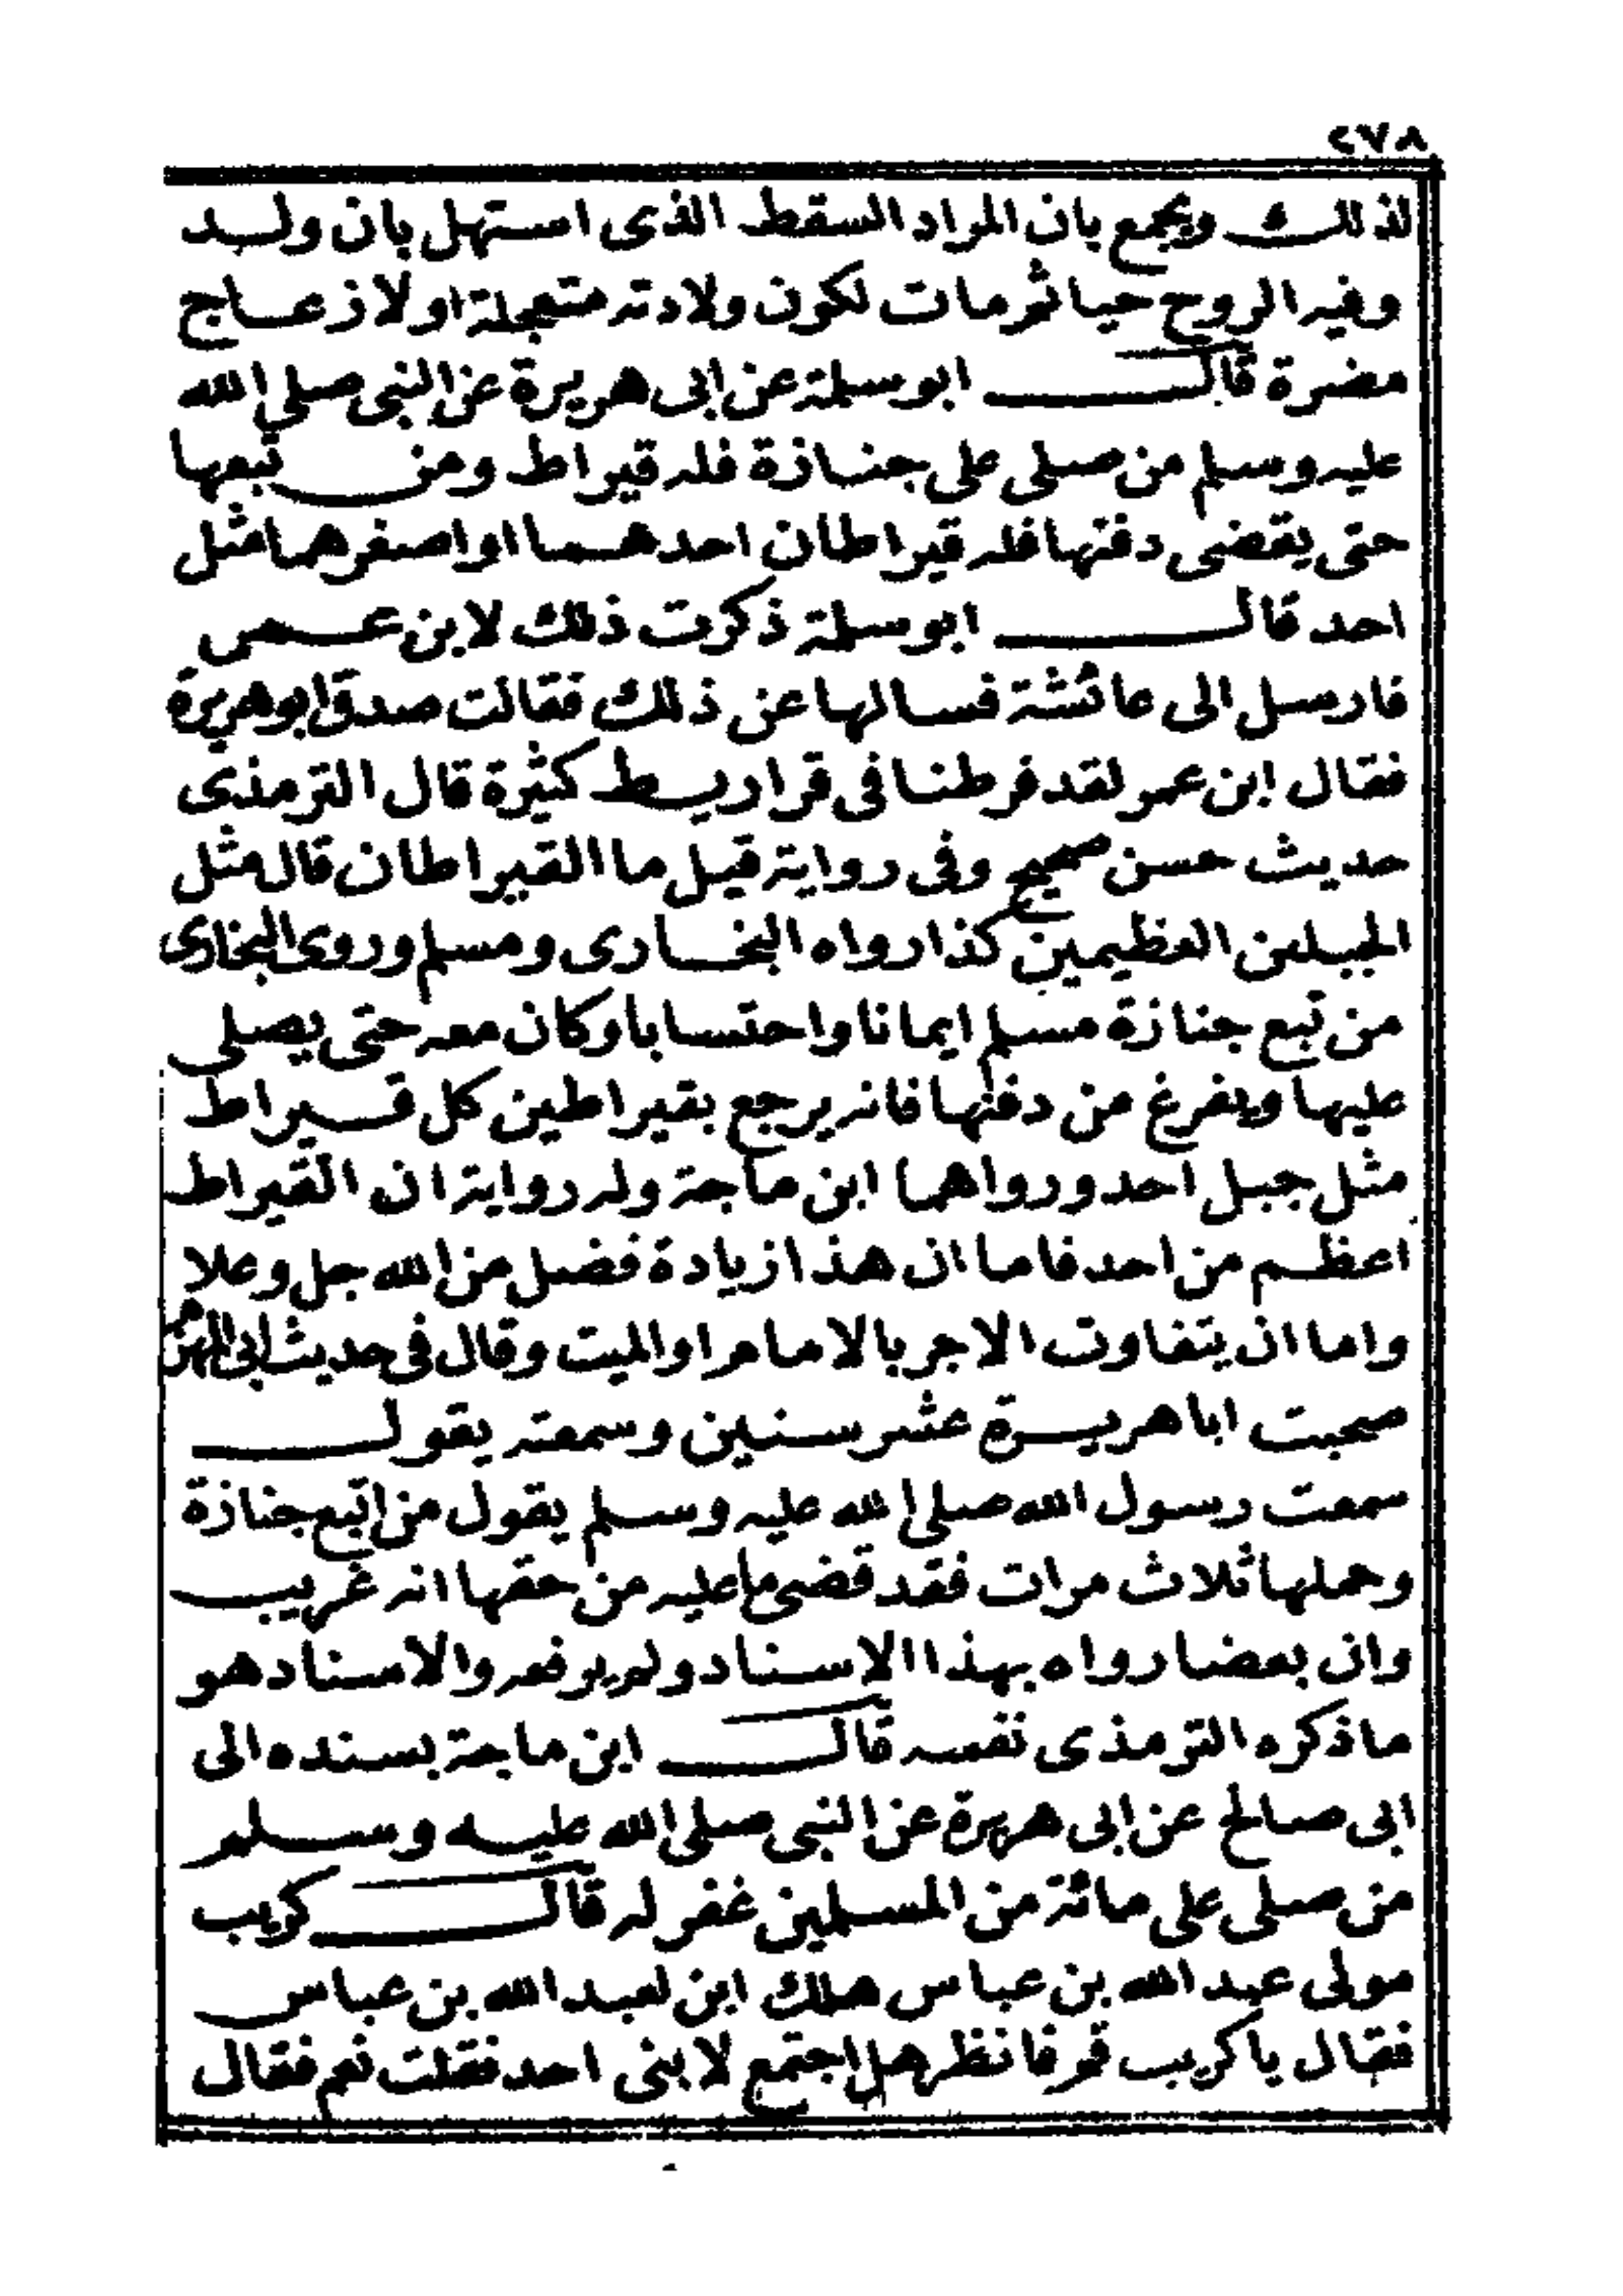 ٢٧٨
لذلك ويجمع بان المراد السقط الذى استهل بان ولد
وفيه الروح حيا ثم مات لكون ولادته متعجلة او لازعاج
مضرة قال ابو سلمة عن ابى هريرة عن النبى صلى الله
عليه وسلم من صلى على جنازة فله قيراط ومن تبعها
حتى يقضى دفنها فله قيراطان احدهما او اصغرهما مثل
احد قال ابو سلمة ذكرت ذلك لابن عمر
فارسل الى عائشة فسالها عن ذلك فقالت صدق ابو هريرة
فقال ابن عمر لقد فرطنا فى قراريط كثيرة قال الترمذى
حديث حسن صحيح وفى رواية قيل ما القيراطان قال مثل
الجبلين العظيمين كذا رواه البخارى ومسلم وروى البخارى
من تبع جنازة مسلم ايمانا واحتسابا وكان معه حتى يصلى
عليها ويفرغ من دفنها فانه يرجع بقيراطين كل قيراط
مثل جبل احد ورواهما ابن ماجة وله رواية ان القيراط
اعظم من احد فاما ان هذا زيادة فضل من الله جل وعلا
واما ان يتفاوت الاجر بالامام او الميت وقال فى حديث ابى المهزم
صحبت ابا هريرة عشر سنين وسمعته يقول
سمعت رسول الله صلى الله عليه وسلم يقول من اتبع جنازة
وحملها ثلاث مرات فقد قضى ما عليه من حقها انه غريب
وان بعضا رواه بهذا الاسناد ولم يرفعه والاسناد هو
ما ذكره الترمذى نفسه قال ابن ماجة بسنده الى
ابى صالح عن ابى هريرة عن النبى صلى الله عليه وسلم
من صلى على مائة من المسلمين غفر له قال كريب
مولى عبد الله بن عباس هلك ابن لعبد الله بن عباس
فقال يا كريب قم فانظر هل اجتمع لابنى احد فقلت نعم فقال